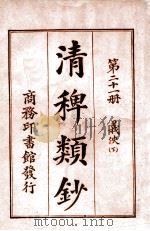 第二十一册
清稗類鈔
商務印書館發行